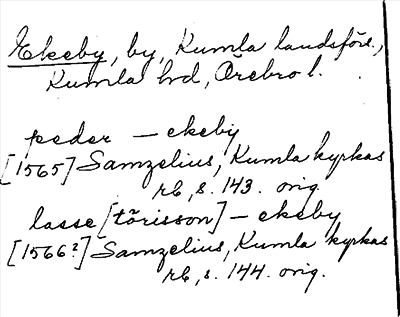 Ekeby, by, Kumla landsförs.,
Kumla hd, Örebro l.
peder — ekeby
[1565] Samzelius, Kumla kyrkas
rb, s. 143. orig.
lasse [törisson] — ekeby
[1566?] Samzelius, Kumla kyrkas
rb, s. 144. orig.